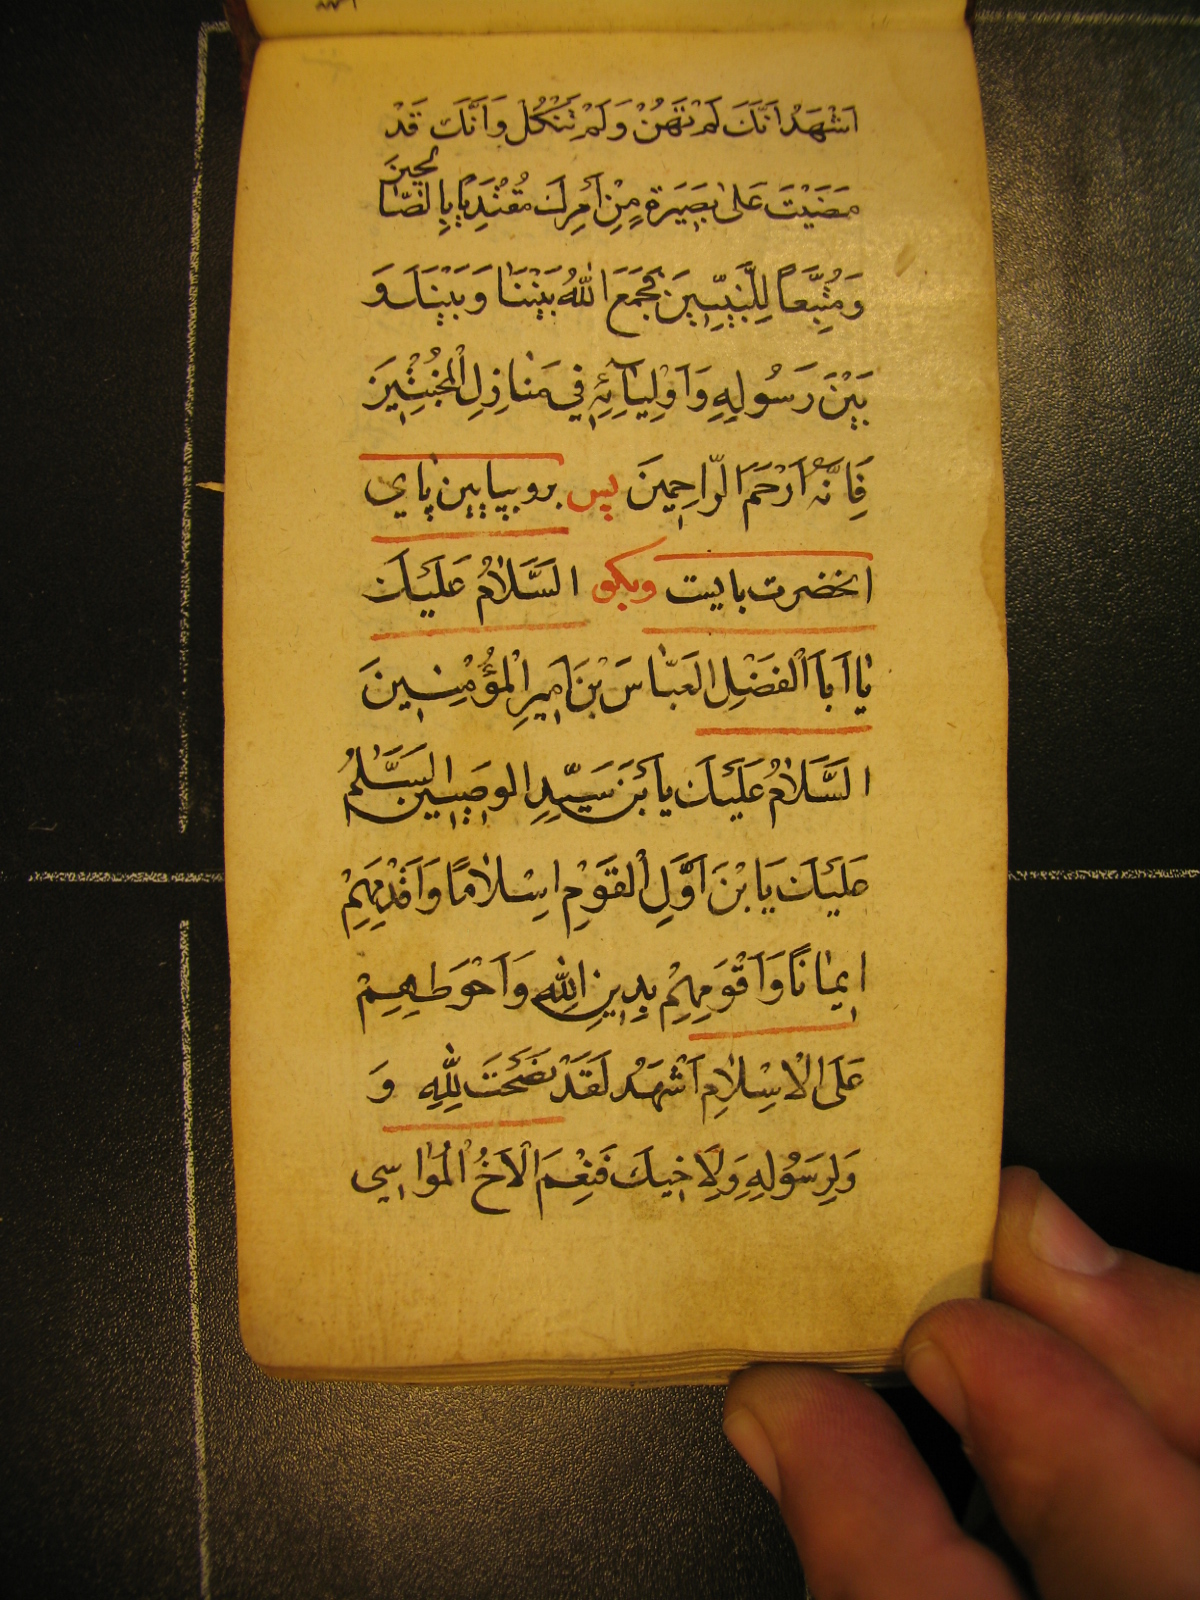 اَشْهَدُ اَنَّكَ لَمْ تَهُنْ وَلَمْ تَنْكُلْ وَاَنَّكَ قَدْ
مَضَيْتَ عَلىٰ بَصِيرَةٍ مِنْ اَمْرِكَ مُقْتَدِيًا بِالصَّالِحِينَ
وَمُتَّبِعًا لِلنَّبِيِّينَ فَجَمَعَ اللّٰهُ بَيْنَنَا وَبَيْنَكَ وَ
بَيْنَ رَسُولِهِ وَاَوْلِيَآئِهِ فِي مَنَازِلِ الْمُخْبِتِينَ
فَاِنَّهُ اَرْحَمُ الرَّاحِمِينَ پس برو بپایین پاي
انحضرت بایست وبکو اَلسَّلَامُ عَلَيْكَ
يَا اَبَا الْفَضْلِ الْعَبَّاسَ بْنَ اَمِيرِ الْمُؤْمِنِينَ
اَلسَّلَامُ عَلَيْكَ يَا بْنَ سَيِّدِ الْوَصِيِّينَ اَلسَّلٰمُ
عَلَيْكَ يَا بْنَ اَوَّلِ الْقَوْمِ اِسْلَامًا وَاَقْدَمِهِمْ
اِيمَانًا وَاَقْوَمِهِمْ بِدِينِ اللّٰهِ وَاَحْوَطِهِمْ
عَلَى الْاِسْلَامِ اَشْهَدُ لَقَدْ نَصَحْتَ لِلّٰهِ وَ
وَلِرَسُولِهِ وَلِاَخِيكَ فَنِعْمَ الْاَخُ الْمُوَاسِي